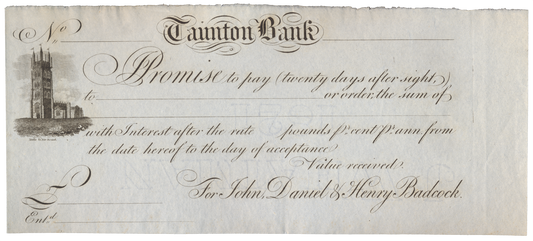 No.
Taunton Bank
Promise to pay (twenty days after sight,)
to or order, the sum of
with Interest after the rate pounds pr. cent pr. ann from
the date hereof to the day of acceptance
Value received.
£ For John, Daniel & Henry Badcock.
Entd.